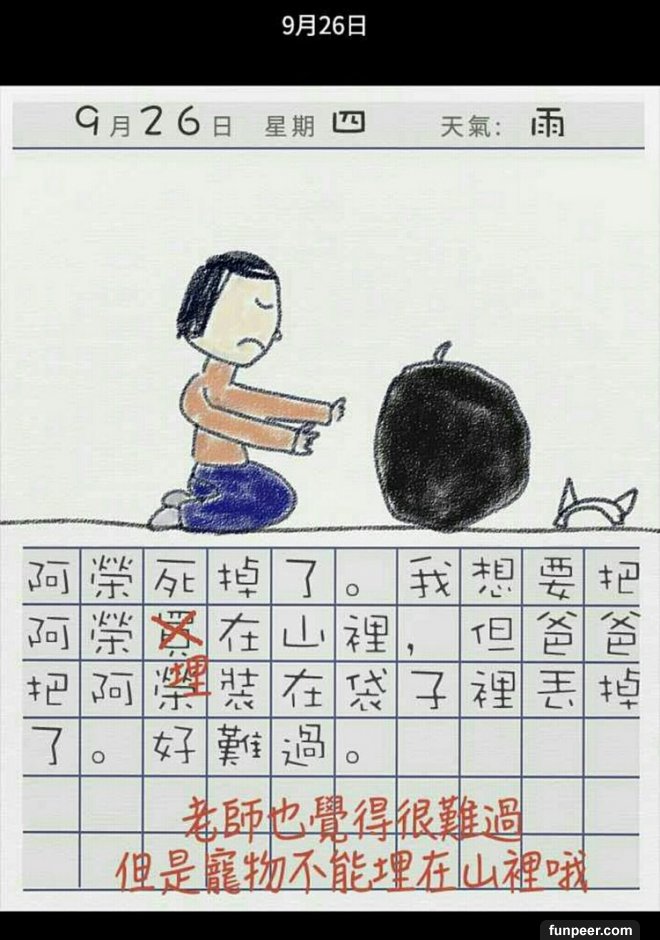 9月26日
9月26日 星期四 天氣: 雨
阿榮死掉了。我想要把
阿榮買在山裡,但爸爸
埋
把阿榮裝在袋子裡丟掉
了。好難過。
老師也覺得很難過
但是寵物不能埋在山裡哦
funpeer.com